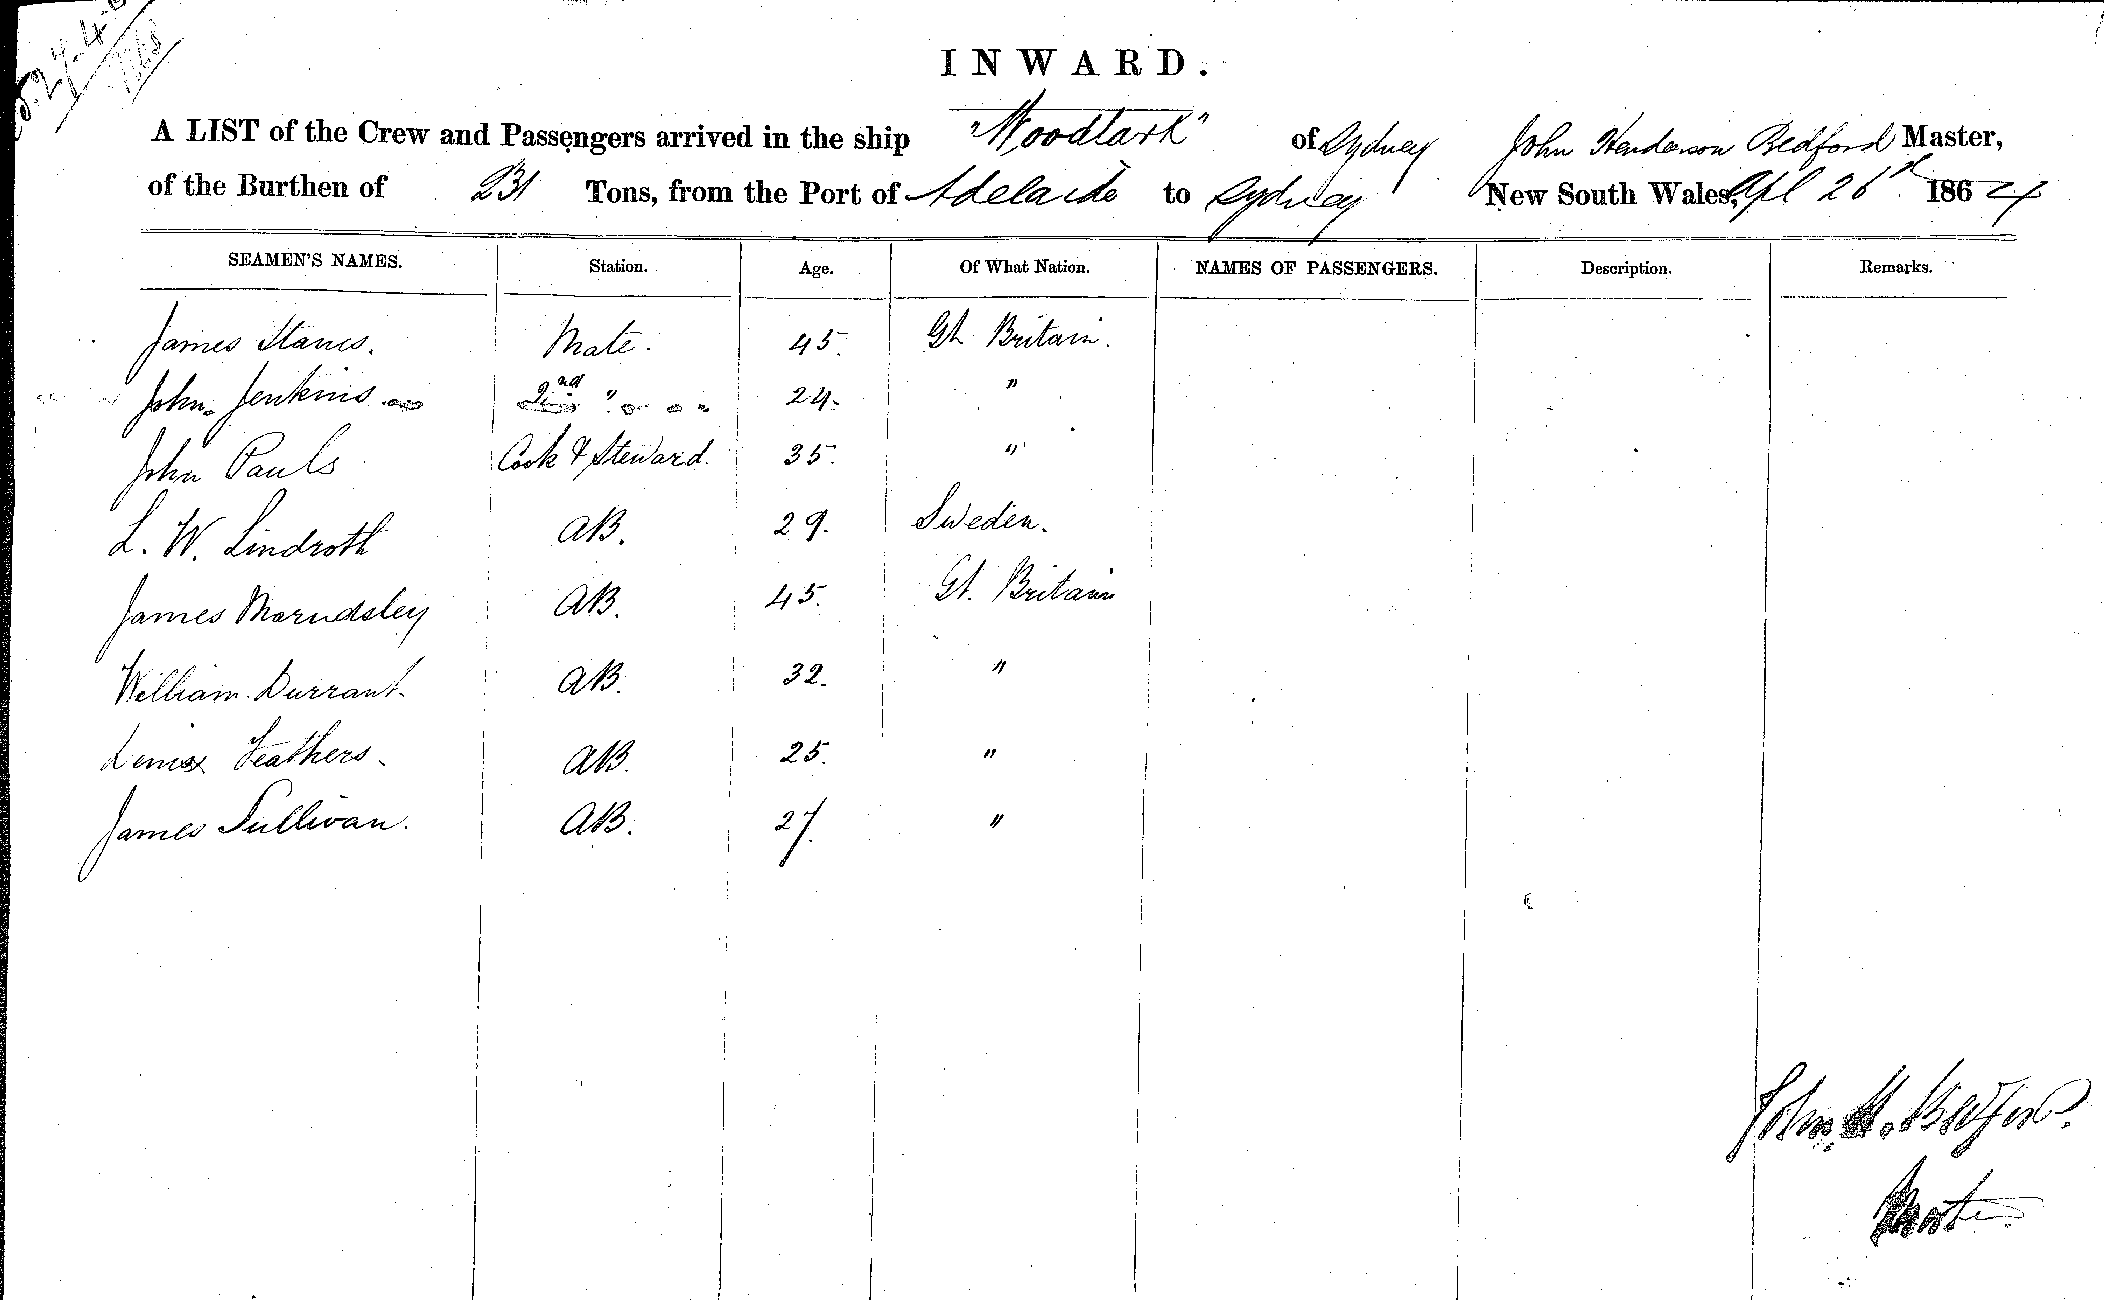 INWARD.
A LIST of the Crew and Passengers arrived in the ship "Woodlark" of Sydney John Henderson Bedford Master,
of the Burthen of 231 Tons, from the Port of Adelaide to Sydney New South Wales, Apl 26 1864
SEAMEN'S NAMES. Station. Age. Of What Nation. NAMES OF PASSENGERS. Description. Remarks.
James Stanes. Mate. 45. Gt. Britain.
John Jenkins 2nd " 24. "
John Pauls Cook & Steward. 35. "
L. W. Lindroth AB. 29. Sweden.
James Marudsley AB. 45. Gt. Britain
William Durrant. AB. 32. "
Feathers. AB. 25. "
James Sullivan. AB. 27. "
John H. Bedford.
Master